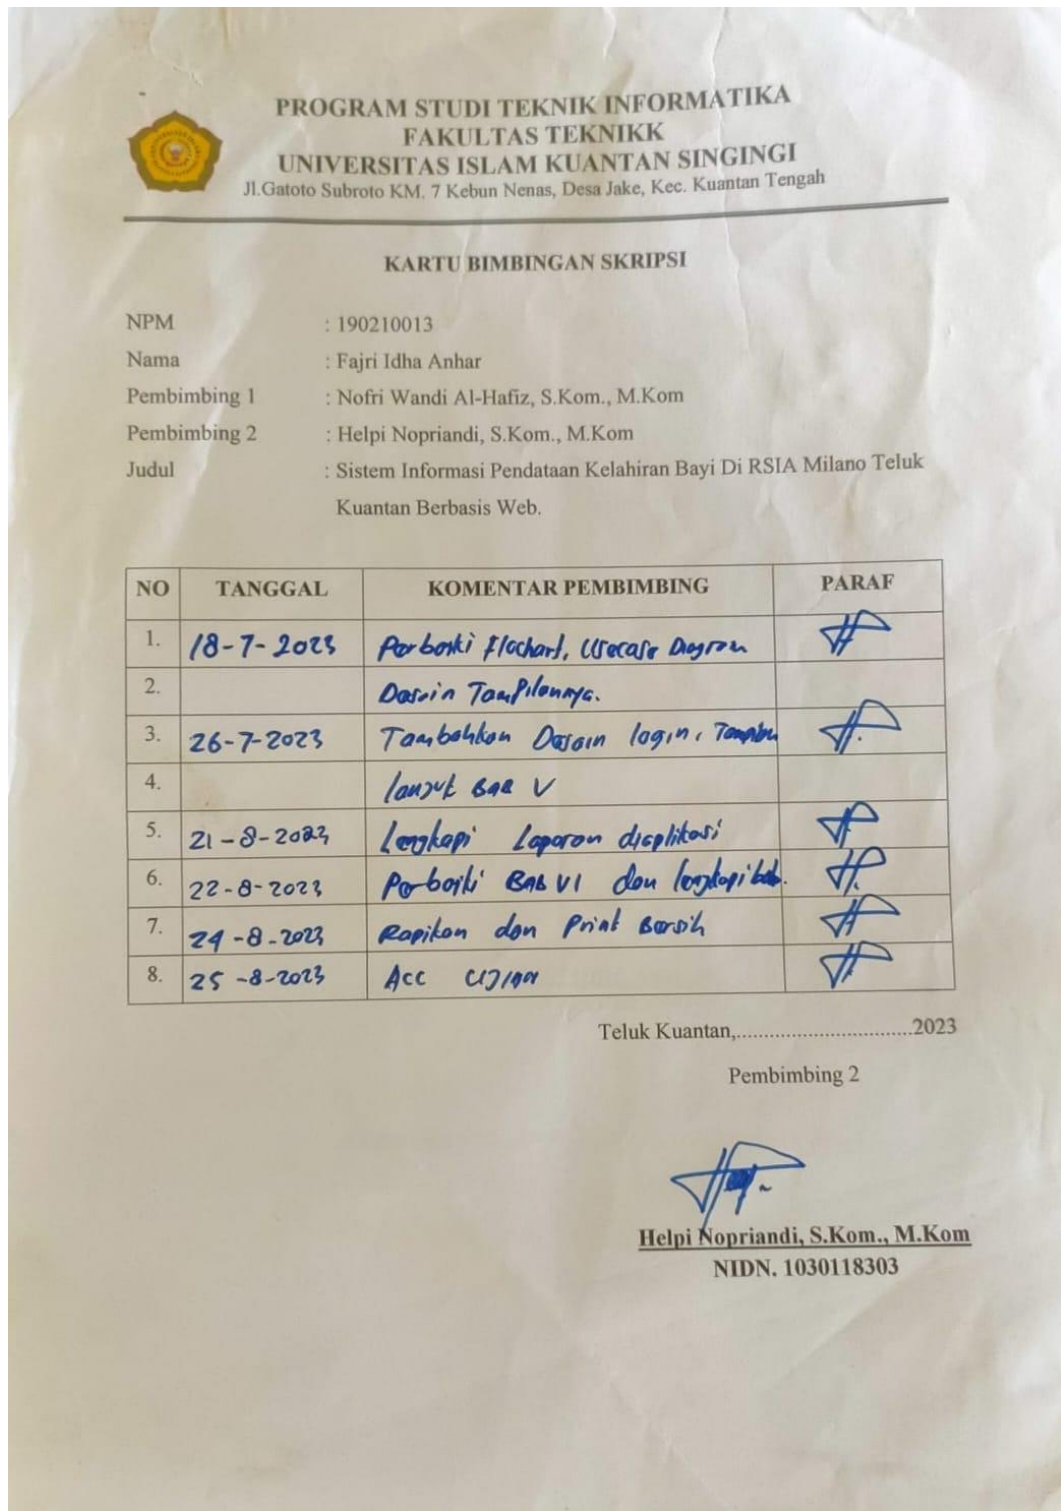 PROGRAM STUDI TEKNIK INFORMATIKA
FAKULTAS TEKNIKK
UNIVERSITAS ISLAM KUANTAN SINGINGI
Jl.Gatoto Subroto KM. 7 Kebun Nenas, Desa Jake, Kec. Kuantan Tengah
KARTU BIMBINGAN SKRIPSI
NPM : 190210013
Nama : Fajri Idha Anhar
Pembimbing 1 : Nofri Wandi Al-Hafiz, S.Kom., M.Kom
Pembimbing 2 : Helpi Nopriandi, S.Kom., M.Kom
Judul : Sistem Informasi Pendataan Kelahiran Bayi Di RSIA Milano Teluk
Kuantan Berbasis Web.
NO TANGGAL KOMENTAR PEMBIMBING PARAF
1. 18-7-2023 Perbaiki Flochart, Usecase Diagram
2. Desain Tampilannya.
3. 26-7-2023 Tambahkan Desain login,
4. lanjut BAB V
5. 21-8-2023 Lengkapi Laporan diaplikasi
6. 22-8-2023 Perbaiki BAB VI dan lengkapi bab.
7. 24-8-2023 Rapikan dan Print Bersih
8. 25-8-2023 Acc Ujian
Teluk Kuantan,................................2023
Pembimbing 2
Helpi Nopriandi, S.Kom., M.Kom
NIDN. 1030118303